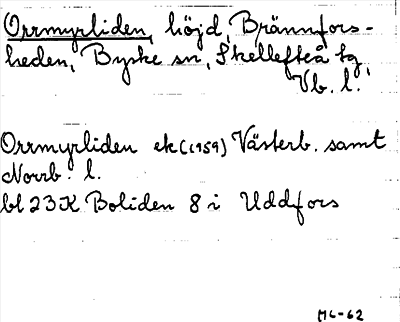 Orrmyrliden, höjd, Brännfors-
heden, Byske sn, Skellefteå tg,
Vb. l.
Orrmyrliden ek (1959) Västerb. samt
Norrb. l.
bl 23K Boliden 8 i Uddfors
MC-62